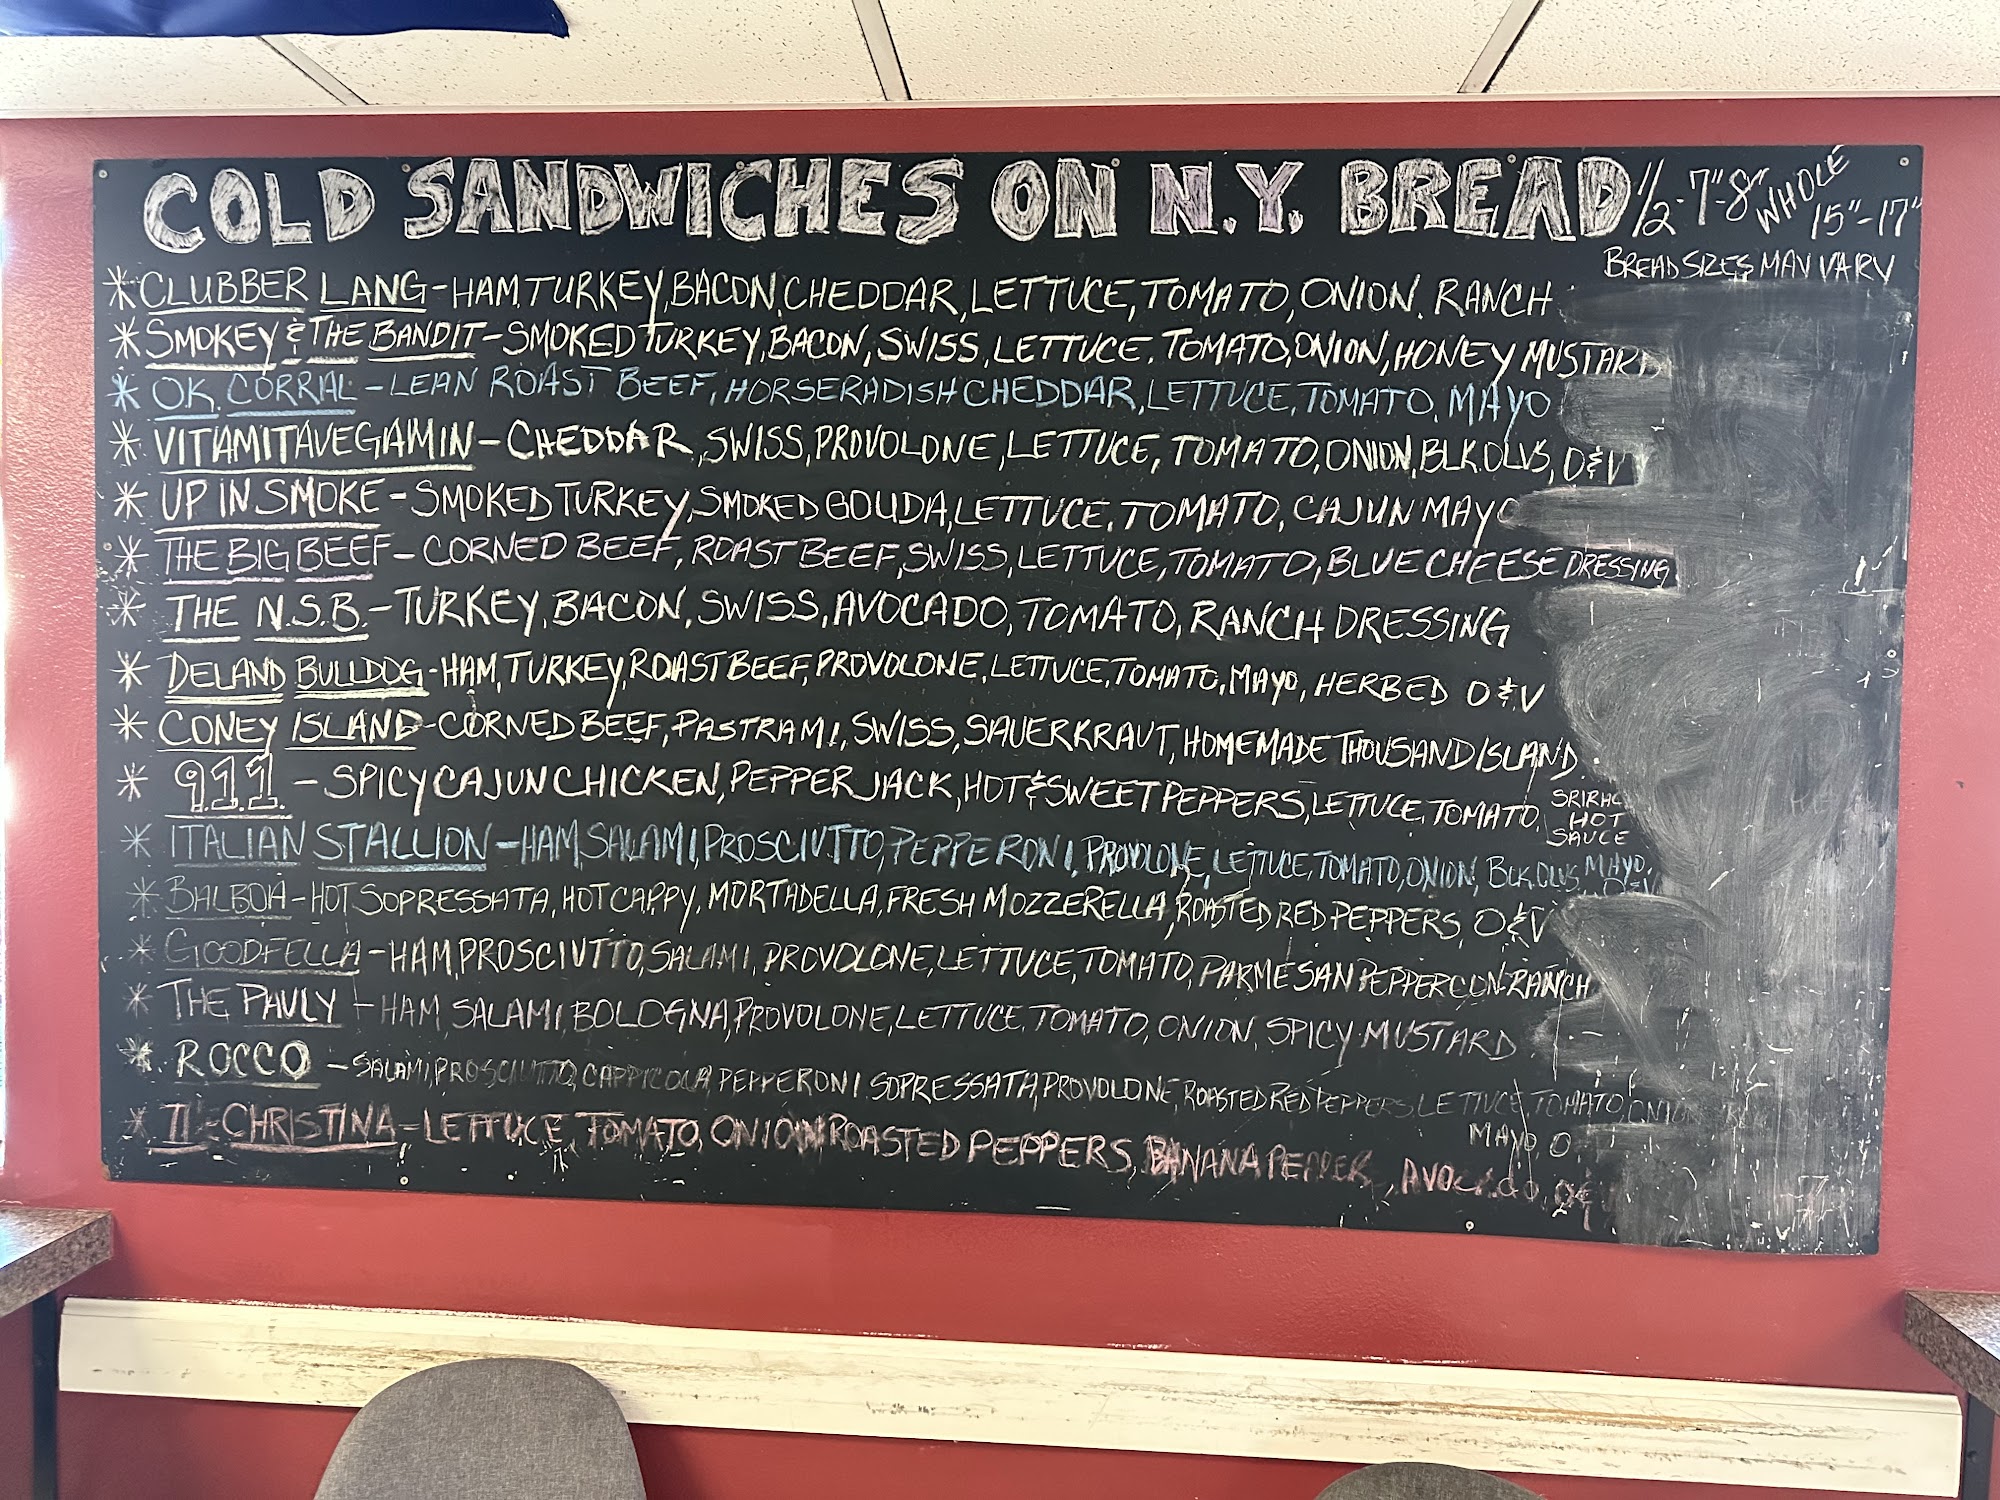 COLD SANDWICHES ON N.Y. BREAD 1/2-7"-8" WHOLE 15"-17"
BREAD SIZES MAY VARY
* CLUBBER LANG-HAM, TURKEY, BACON, CHEDDAR, LETTUCE, TOMATO, ONION, RANCH
* SMOKEY & THE BANDIT-SMOKED TURKEY, BACON, SWISS, LETTUCE, TOMATO, ONION, HONEY MUSTARD
* O.K. CORRIAL-LEAN ROAST BEEF, HORSERADISH CHEDDAR, LETTUCE, TOMATO, MAYO
* VITAMITAVEGAMIN-CHEDDAR, SWISS, PROVOLONE, LETTUCE, TOMATO, ONION, BLK. OLVS, O&V
* UP IN SMOKE-SMOKED TURKEY, SMOKED GOUDA, LETTUCE, TOMATO, CAJUN MAYO
* THE BIG BEEF-CORNED BEEF, ROAST BEEF, SWISS, LETTUCE, TOMATO, BLUE CHEESE DRESSING
* THE N.S.B.-TURKEY, BACON, SWISS, AVOCADO, TOMATO, RANCH DRESSING
* DELAND BULLDOG-HAM, TURKEY, ROAST BEEF, PROVOLONE, LETTUCE, TOMATO, MAYO, HERBED O&V
* CONEY ISLAND-CORNED BEEF, PASTRAMI, SWISS, SAUERKRAUT, HOMEMADE THOUSAND ISLAND.
* 9.1.1.-SPICY CAJUN CHICKEN, PEPPER JACK, HOT & SWEET PEPPERS, LETTUCE, TOMATO,
HOT
SAUCE
* ITALIAN STALLION-HAM, SALAMI, PROSCIUTTO, PEPPERONI, PROVOLONE, LETTUCE, TOMATO, ONION, BLK. OLVS, MAYO,
* BALBOA-HOT SOPRESSATA, HOT CAPPY, MORTADELLA, FRESH MOZZERELLA, ROASTED RED PEPPERS, O&V
* GOODFELLA-HAM, PROSCIUTTO, SALAMI, PROVOLONE, LETTUCE, TOMATO, PARMESAN PEPPERCORN-RANCH
* THE PAULY-HAM SALAMI, BOLOGNA, PROVOLONE, LETTUCE, TOMATO, ONION, SPICY MUSTARD
* ROCCO-SALAMI, PROSCIUTTO, CAPPICOLA, PEPPERONI SOPRESSATA, PROVOLONE, ROASTED RED PEPPERS, LETTUCE, TOMATO, ONION
MAYO O
* TI-CHRISTINA-LETTUCE, TOMATO, ONION ROASTED PEPPERS, BANANA PEPPER, AVOCADO,